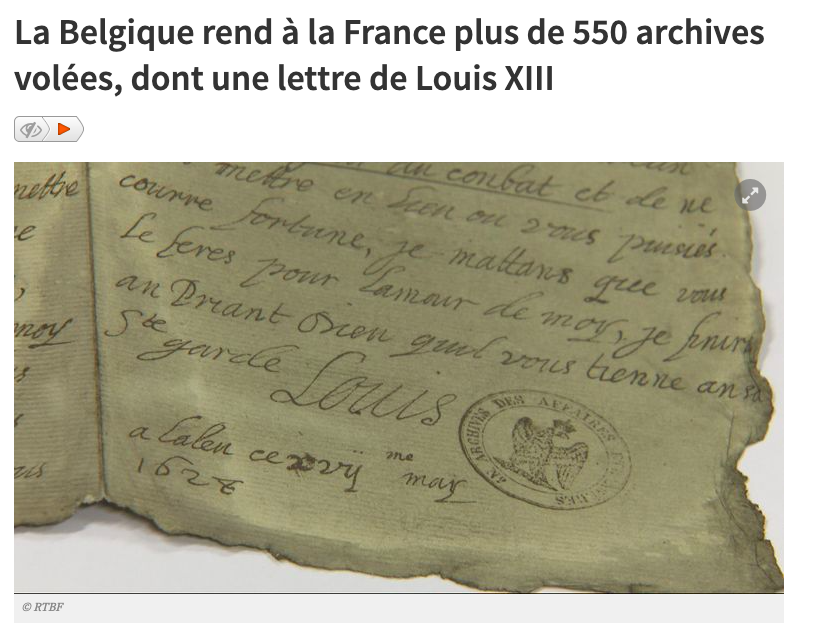 La Belgique rend à la France plus de 550 archives
volées, dont une lettre de Louis XIII
mettre
au conbat et de ne
mettre en lieu ou vous puisiés
courre fortune, je mattans que vous
le feres pour lamour de moy, je finire
an Priant Dieu quil vous tienne an sa
Ste garde
Louis
ARCHIVES DES AFFAIRES
a ce xvij me may
162
© RTBF